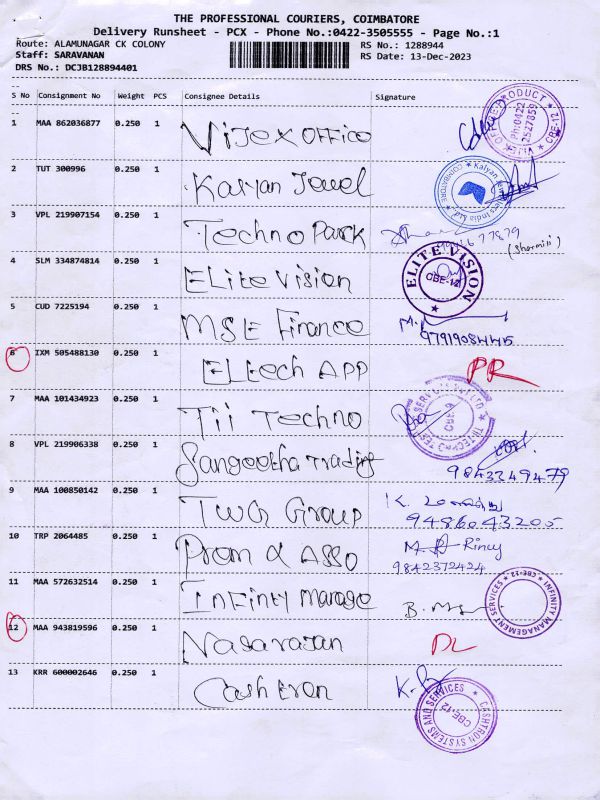 THE PROFESSIONAL COURIERS, COIMBATORE
Delivery Runsheet - PCX - Phone No.:0422-3505555 - Page No.:1
Route: ALAMUNAGAR CK COLONY RS No.: 1288944
Staff: SARAVANAN RS Date: 13-Dec-2023
DRS No.: DCJB128894401
S No Consignment No Weight PCS Consignee Details Signature
1 MAA 862036877 0.250 1 Vijex Office
PRODUCT Ph:0422 2527859 CBE-12
2 TUT 300996 0.250 1 Kalyan Jewel
Kalyan Jewellers India Ltd. COIMBATORE
3 VPL 219907154 0.250 1 Techno Park
(Sharmili)
4 SLM 334874814 0.250 1 Elite Vision
ELITE VISION CBE-12
5 CUD 7225194 0.250 1 MSE Finance
9791908445
6 IXM 505488130 0.250 1 Eltech APP PR
7 MAA 101434923 0.250 1 Tii Techno
8 VPL 219906338 0.250 1 Sangeetha Trading
9843349479
9 MAA 100850142 0.250 1 Group K.
9486043205
10 TRP 2064485 0.250 1 Prem & Asso Rincy
9842372424
11 MAA 572632514 0.250 1 Infinty Manage B.
INFINITY MANAGEMENT SERVICES * CBE-12 *
12 MAA 943819596 0.250 1 Nasarajan DL
13 KRR 600002646 0.250 1 Cash Eron K.
CASHTRON SYSTEMS AND SERVICES CBE-12